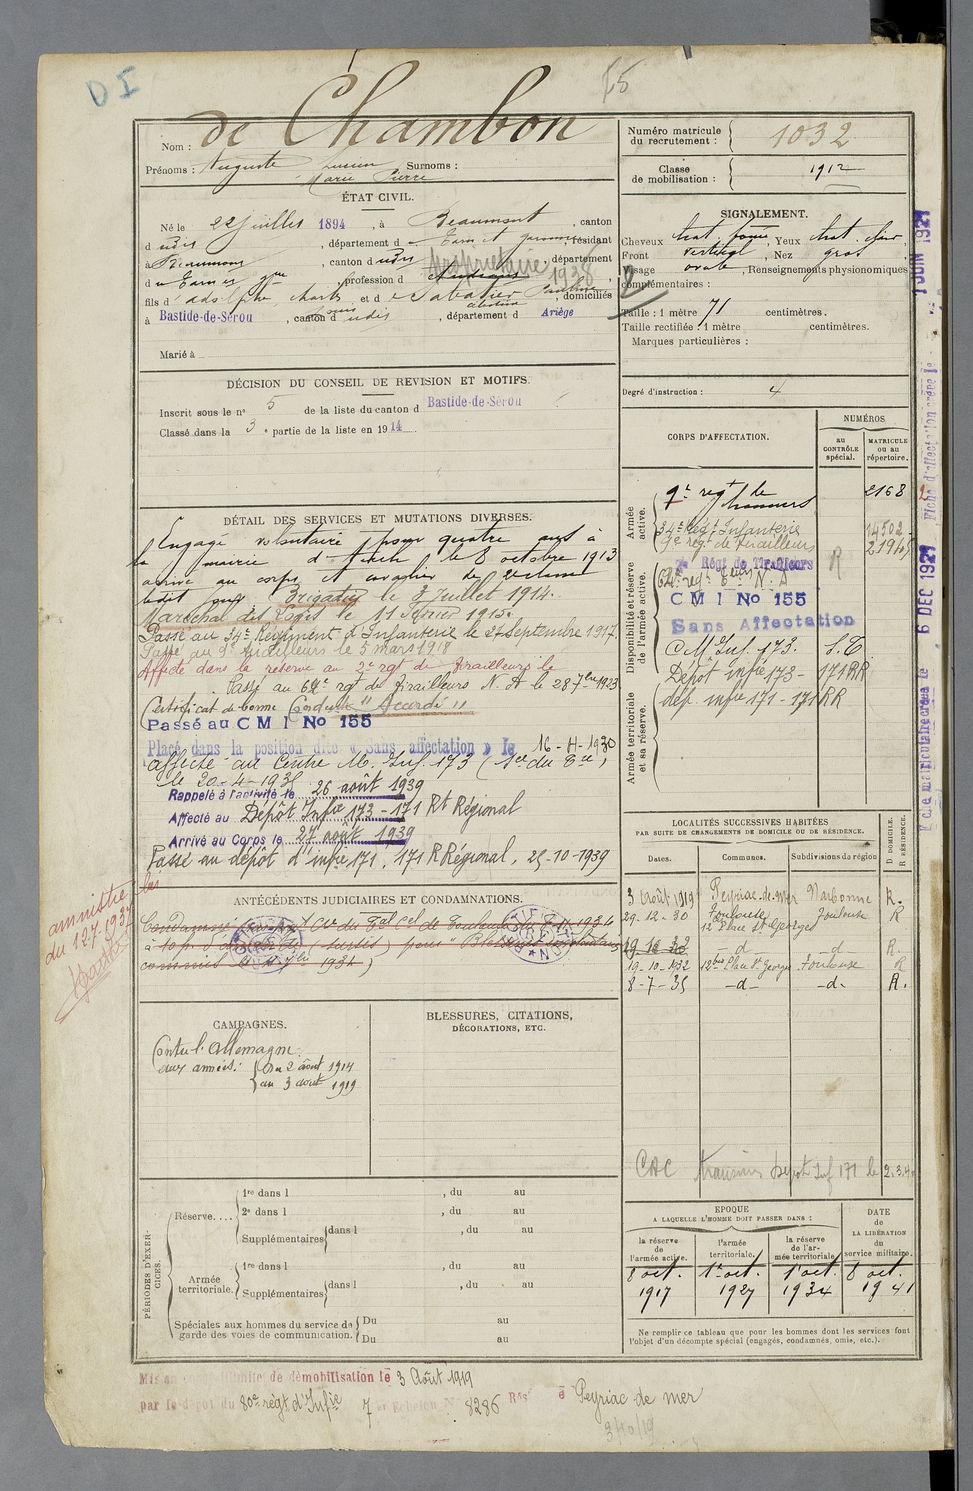 DI
65
Nom : de Chambon
Prénoms : Auguste Lucien Surnoms :
Marie Pierre
ÉTAT CIVIL.
Né le 22 juillet 1894, à Beaumont, canton
d udis, département d Tarn et garonne, résidant
à Beaumont, canton d udis, département
d Tarn et gne, profession d étudiant
propriétaire 1938
fils d' adolphe charles et d Sabatier Pauline, domiciliés
à Bastide-de-Sérou, canton d udis, département d Ariège
Marié à
DÉCISION DU CONSEIL DE REVISION ET MOTIFS.
Inscrit sous le n° 5 de la liste du canton d Bastide-de-Sérou
Classé dans la 3e partie de la liste en 1914
DÉTAIL DES SERVICES ET MUTATIONS DIVERSES.
Engagé volontaire pour quatre ans à
la mairie d'Auch le 8 octobre 1913
arrivé au corps et cavalier de 2e classe
ledit jour Brigadier le 3 Juillet 1914.
Maréchal des Logis le 11 Février 1915.
Passé au 34e Régiment d'Infanterie le 27 Septembre 1917
Passé au 9e Tirailleurs le 5 mars 1918
Affecté dans la réserve au 2e rgt de Tirailleurs le
Passé au 64e rgt de Tirailleurs N. A le 28 7bre 1923
Certificat de bonne Conduite "Accordé"
Passé au C M I No 155
Placé dans la position dite « Sans affectation » le 16-4-1930
affecté au Centre M. Inf. 173
le 20-4-1935
Rappelé à l'activité le 26 août 1939
Affecté au Dépôt Infie 173-171 Rt Régional
Arrivé au Corps le 27 août 1939
Passé au dépôt d'infie 171, 171 R Régional, 25-10-1939
amnistie loi
du 12.7.1937
ANTÉCÉDENTS JUDICIAIRES ET CONDAMNATIONS.
Condamné par le Tal Cel de Toulouse
à (sursis) pour "Blessures involontaires
commises le 1934)
CAMPAGNES.
Contre l'Allemagne.
aux armées: du 2 août 1914
au 3 août 1919
BLESSURES, CITATIONS,
DÉCORATIONS, ETC.
PÉRIODES D'EXERCICES.
Réserve....
1re dans l , du au
2e dans l , du au
Supplémentaires dans l , du au
Armée territoriale.
1re dans l , du au
Supplémentaires dans l , du au
Spéciales aux hommes du service de garde des voies de communication.
Du au
Du au
Mis en congé illimité de démobilisation le 3 Août 1919
par le dépôt du 80e régt d'Infie 7 er Echelon N° 8286 Rés é Peyriac de mer
3/10/19
Numéro matricule
du recrutement : 1032
Classe
de mobilisation : 1912
SIGNALEMENT.
Cheveux chat. foncé, Yeux chat. clair,
Front vertical, Nez gros
Visage ovale, Renseignements physionomiques
complémentaires :
Taille : 1 mètre 71 centimètres.
Taille rectifiée : 1 mètre centimètres.
Marques particulières :
Degré d'instruction : 4
CORPS D'AFFECTATION.
NUMÉROS
au CONTRÔLE spécial.
MATRICULE ou au répertoire.
Armée active.
9e regt de chasseurs 2168
34e Régt Infanterie 14502
9e régt de Tirailleurs 21945
Disponibilité et réserve de l'armée active.
2e Régt de Tirailleurs R
64e regt Tirs N. A
C M I No 155
Sans Affectation
C. M Inf. 173. S.T.
Armée territoriale et sa réserve.
Dépôt infie 173- 171 RR
dép. infie 171 - 171 RR
LOCALITÉS SUCCESSIVES HABITÉES
PAR SUITE DE CHANGEMENTS DE DOMICILE OU DE RÉSIDENCE.
D DOMICILE.
R RÉSIDENCE.
Dates. Communes. Subdivisions de région
3 Août 1919 Peyriac-de-Mer Narbonne R.
29-12-30 Toulouse Toulouse R
12 Place St Georges
-d- -d- R.
19-10-1932 12bis Place St Georges Toulouse R
8-7-35 -d- -d- R.
CAC transmis Dépôt Inf 171 le 2.3.40
EPOQUE
A LAQUELLE L'HOMME DOIT PASSER DANS :
DATE
de
LA LIBÉRATION
du
service militaire.
la réserve de l'armée active. l'armée territoriale. la réserve de l'armée territoriale
8 oct. 1er oct. 1 oct. 8 oct.
1917 1927 1934 1941
Ne remplir ce tableau que pour les hommes dont les services font
l'objet d'un décompte spécial (engagés, condamnés, omis, etc.).
JUIN 1921
Fiche d'affectation créée le
F che matriculaire créée le 6 DEC 1921